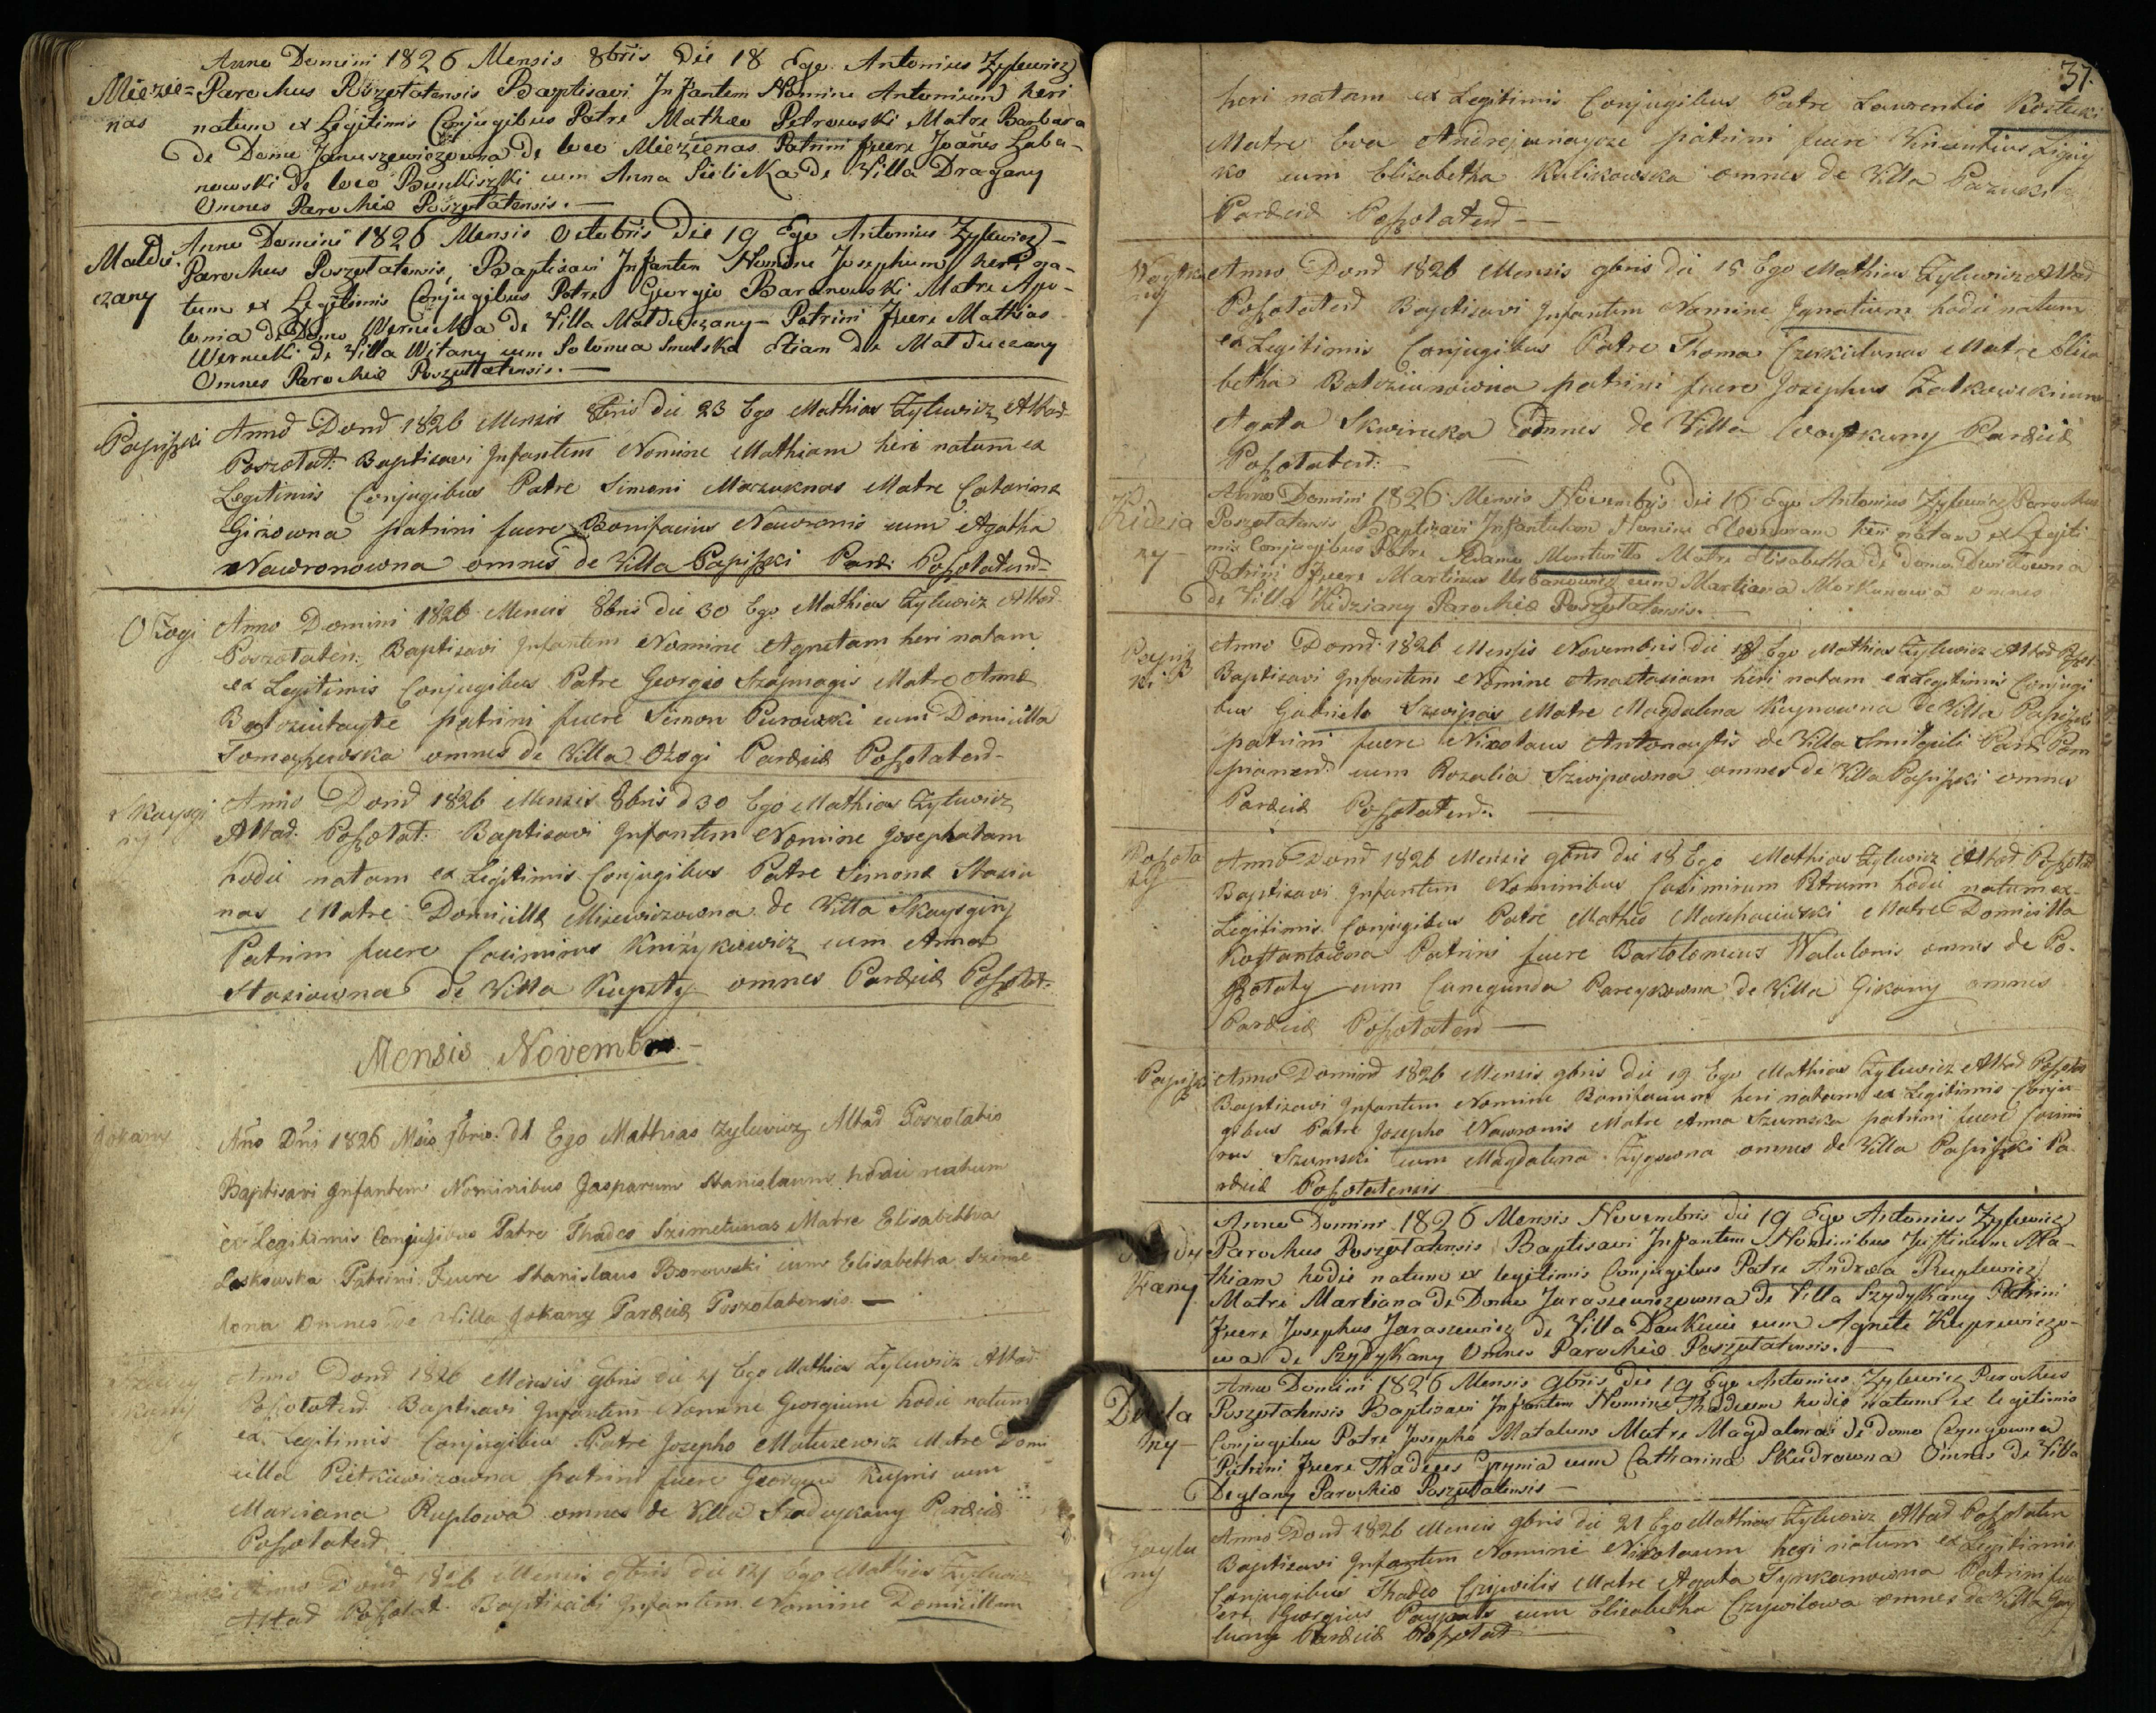 Anno Domini 1826 Mensis 8bris Die 18 Ego Antonius Zylewicz
Miezie= Parochus Poszołatensis Baptisavi Infantem Nomine Antonium heri
nas natum ex Legitimis Conjugibus Patre Matheo Petrowski Matre Barbara
de Domo Januszewiczowna de loco Miezienas Patrini fuere Joãnes Laba-
nowski de loco Bunkiszki cum Anna Sielicka de Villa Dragany
Omnes Parochiæ Poszołatensis. —
Anno Domini 1826 Mensis Octobris Die 19 Ego Antonius Zylewicz —
Maldu- Parochus Poszołatensis, Baptisavi Infantem Nomine Josephum heri na-
czany tum ex Legitimis Conjugibus Patre Georgio Baranowski Matre Apo-
lonia de Domo Wernicka de Villa Malduczany — Patrini fuere Mathias
Wernicki de Villa Witany cum Solomea Smulska Etiam de Malduczany
Omnes Parochiæ Poszołatensis. —
Papiszki Anno Domd 1826 Mensis 8bris die 23 Ego Mathias Zylewicz Altad
Poszołat: Baptisavi Infantem Nomine Mathiam heri natum ex
Legitimis Conjugibus Patre Simoni Maczuknas Matre Catarina
Girzowna patrini fuere Bonifacius Nawronis cum Agatha
Nawronowna omnes de Villa Papiszki Paræ: Poszołatend
Ożogi Anno Domini 1826 Mensis 8bris die 30 Ego Mathias Zylewicz Altad
Poszołaten: Baptisavi Infantem Nomine Agnetam heri natam
ex Legitimis Conjugibus Patre Georgio Szapnagis Matre Anna
patrini fuere Simon Purowski cum Domicilla
Tomaszewska omnes de Villa Ożogi Paræciæ Poszołatend —
Skaysgi Anno Domd 1826 Mensis 8bris d 30 Ego Mathias Zylewicz
ny Altad. Poszołat: Baptisavi Infantem Nomine Josephatam
hodie natam ex Legitimis Conjugibus Patre Simone Stasiu
nas Matre Domicilla Misiewiczowna de Villa Skaysginy
Patrini fuere Casimirus Kniżykiewicz cum Anna
Stasiowna de Villa Kupszty omnes Paræciæ Poszołat.
Mensis Novembris —
Jokany Año Dñi 1826 Mẽis 9bris. d 1 Ego Mathias Zylewicz Altad Poszołatis
Baptisavi Infantem Nominibus Gasparum Stanislaum hodie natum
ex Legitimis Conjugibus Patre Thadeo Szimelunas Matre Elisabetha
Laskowska Patrini Fuere Stanislaus Borowski cum Elisabetha Szime-
lona Omnes de Villa Jokany Paræciæ Poszołatensis —
Anno Domd 1826 Mensis 9bris die 4 Ego Mathias Zylewicz Altad
Poszołatend Baptisavi Infantem Nomine Georgium hodie natum
ex Legitimis Conjugibus Patre Josepho Matuzewicz Matre Domi
cilla Pietkiewiczowna patrini fuere Georgius Kupris cum
Marciana Ruplowa omnes de Villa Szadwykany Paræciæ
Poszołatend
Anno Domd 1826 Mensis 9bris die 14 Ego Mathias Zylewicz
Altad Poszołat. Baptisavi Infantem Nomine Domicillam
37.
heri natam ex Legitimis Conjugibus Patre Laurentio
Matre Eva patrini fuere Vincentius
ko cum Elisabetha Kulikowska omnes de Villa
Paræciæ Poszołatend —
Anno Domd 1826 Mensis 9bris die 15 Ego Mathias Zylewicz Altad
Poszołatend Baptisavi Infantem Nomine Ignatium hodie natum
ex Legitimis Conjugibus Patre Thoma Matre Elisa
betha Balcziunowna patrini fuere Josephus Zatkowski cum
Agata Skwirucka Omnes de Villa Woytkuny Paræciæ
Poszołatend: —
Anno Domini 1826 Mensis Novembris Die 16 Ego Antonius Zylewicz Parochus
Kidzia Poszołatensis Baptisavi Infantulam Nomine Eleonoram heri natam ex Legiti
ny — mis Conjugibus Patre Adamo Montwitto Matre Elisabetha de Domo
Patrini Fuere Martinus Urbanowicz cum Martiana Morkunowa omnes
de Villa Kidziany Parochiæ Poszołatensis. —
Papisz Anno Domd 1826 Mensis Novembris die 18 Ego Mathias Zylewicz Altad Poszoł
ki Baptisavi Infantem Nomine Anastasiam heri natam ex Legitimis Conjugi
bus Gabrielo Szwipas Matre Magdalena Kuynowna de Villa Papiszki
patrini fuere Nicolaus de Villa Smilguli Paræ Pom
pianend cum Rozalia Szwipowna omnes de Villa Papiszki omnes
Paræciæ Poszołatend: —
Poszoła Anno Domd 1826 Mensis 9bris die 18 Ego Mathias Zylewicz Altad Poszołat
ty Baptisavi Infantem Nominibus Casimirum Petrum hodie natum ex
Legitimis Conjugibus Patre Matheo Marchaciewski Matre Domicilla
Patrini fuere Bartolomeus Walulonis omnes de Po-
szołaty cum Cunegunda de Villa Gikany omnes
Paræciæ Poszołatend —
Papiszki Anno Domind 1826 Mensis 9bris die 19 Ego Mathias Zylewicz Altad Poszołat
Baptisavi Infantem Nomine Bonifacium heri natum ex Legitimis Conju-
gibus Patre Josepho Nawronis Matre Anna Szumska patrini fuere Casimi
rus Szumski cum Magdalena Zygowna omnes de Villa Papiszki Pa-
ræciæ Poszołatensis —
Anno Domini 1826 Mensis Novembris die 19 Ego Antonius Zylewicz
Parochus Poszołatensis Baptisavi Infantem Nominibus Justinum Ma-
kany thiam hodie natum ex legitimis Conjugibus Patre Andrea Ruplewicz
Matre Martiana de Domo Jaraszewiczowna de Villa Szydykany Patrini
fuere Josephus Jaraszewicz de Villa Daukucie cum Agnete Kuprewiczo-
wa de Szydykany Omnes Parochiæ Poszołatensis. —
Anno Domini 1826 Mensis 9bris die 19 Ego Antonius Zylewicz Parochus
Deyla Poszołatensis Baptisavi Infantem Nomine Thadeum hodie natum ex legitimis
ny — Conjugibus Patre Josepho Matalunas Matre Magdalena de domo Czyngowna
Patrini fuere Thadeus cum Catharina Skudrowna Omnes de Villa
Deylany Parochiæ Poszołatensis —
Anno Domd 1826 Mensis 9bris die 21 Ego Mathias Zylewicz Altad Poszołaten
Gaylu Baptisavi Infantem Nomine Nicolaum heri natum ex Legitimis
ny Conjugibus Thadeo Matre Agata Patrini fue
re Georgius cum Elisabetha omnes de Villa Gay
luny Paræciæ Poszołat